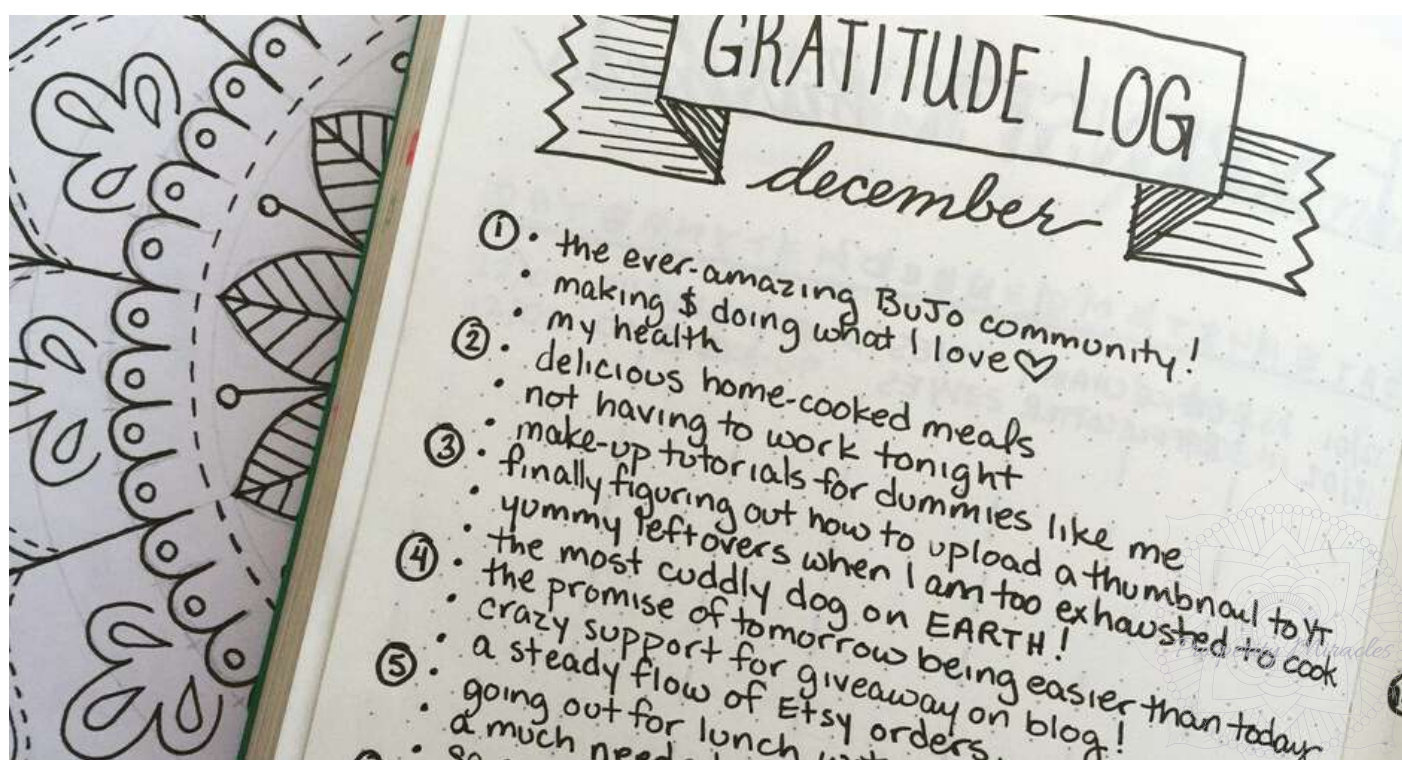 GRATITUDE LOG
december
① • the ever-amazing BuJo community!
• making $ doing what I love♡
• my health
② • delicious home-cooked meals
• not having to work tonight
• make-up tutorials for dummies like me
③ • finally figuring out how to upload a thumbnail to YT
• yummy leftovers when I am too exhausted to cook
• the most cuddly dog on EARTH!
④ • the promise of tomorrow being easier than today
• crazy support for giveaway on blog!
• a steady flow of Etsy orders
⑤ • going out for lunch
• a much
Miracles